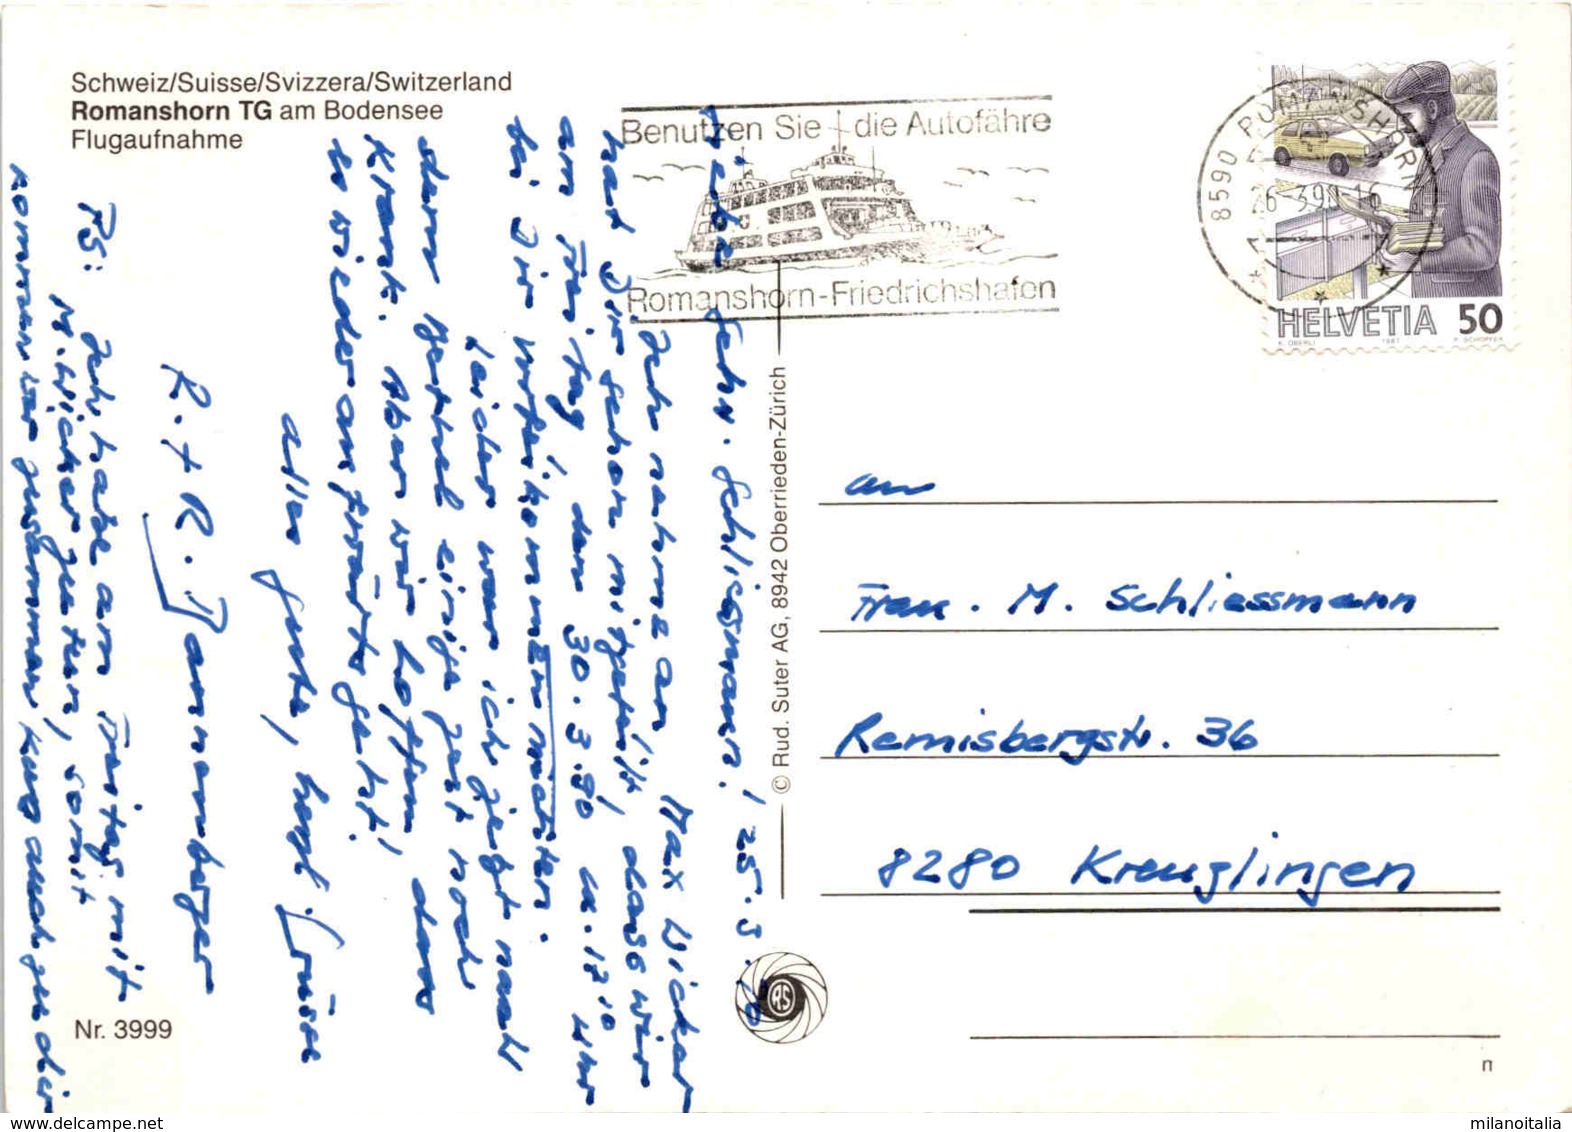 Schweiz/Suisse/Svizzera/Switzerland
Romanshorn TG am Bodensee
Flugaufnahme
Benutzen Sie die Autofähre
Romanshorn-Friedrichshafen
8590 ROMANSHORN
26.-3.90-16
HELVETIA 50
K. OBERLI 1987 P. SCHOPFER
Liebe Schw. Schliessmann! 25.3.90
Ich nehme an, Max Wicker
hat Dir schon mitgeteilt, dass wir
am Freitag, den 30.3.90 u. 17¹⁰ Uhr
bei Dir vorbeikommen möchten.
Leider war ich jetzt nach
dem
Krank. Aber wir hoffen, dass
es wieder aufwärts geht!
alles gute, herzl. Grüsse
R. + R. Dannenberger
PS: Ich habe am Freitag mit
M. Wicker zu tun, somit
kommen wir zusammen kurz auch zu dir
© Rud. Suter AG, 8942 Oberrieden-Zürich
RS
an
Frau. M. Schliessmann
Remisbergstr. 36
8280 Kreuzlingen
Nr. 3999
n
www.delcampe.net
milanoitalia